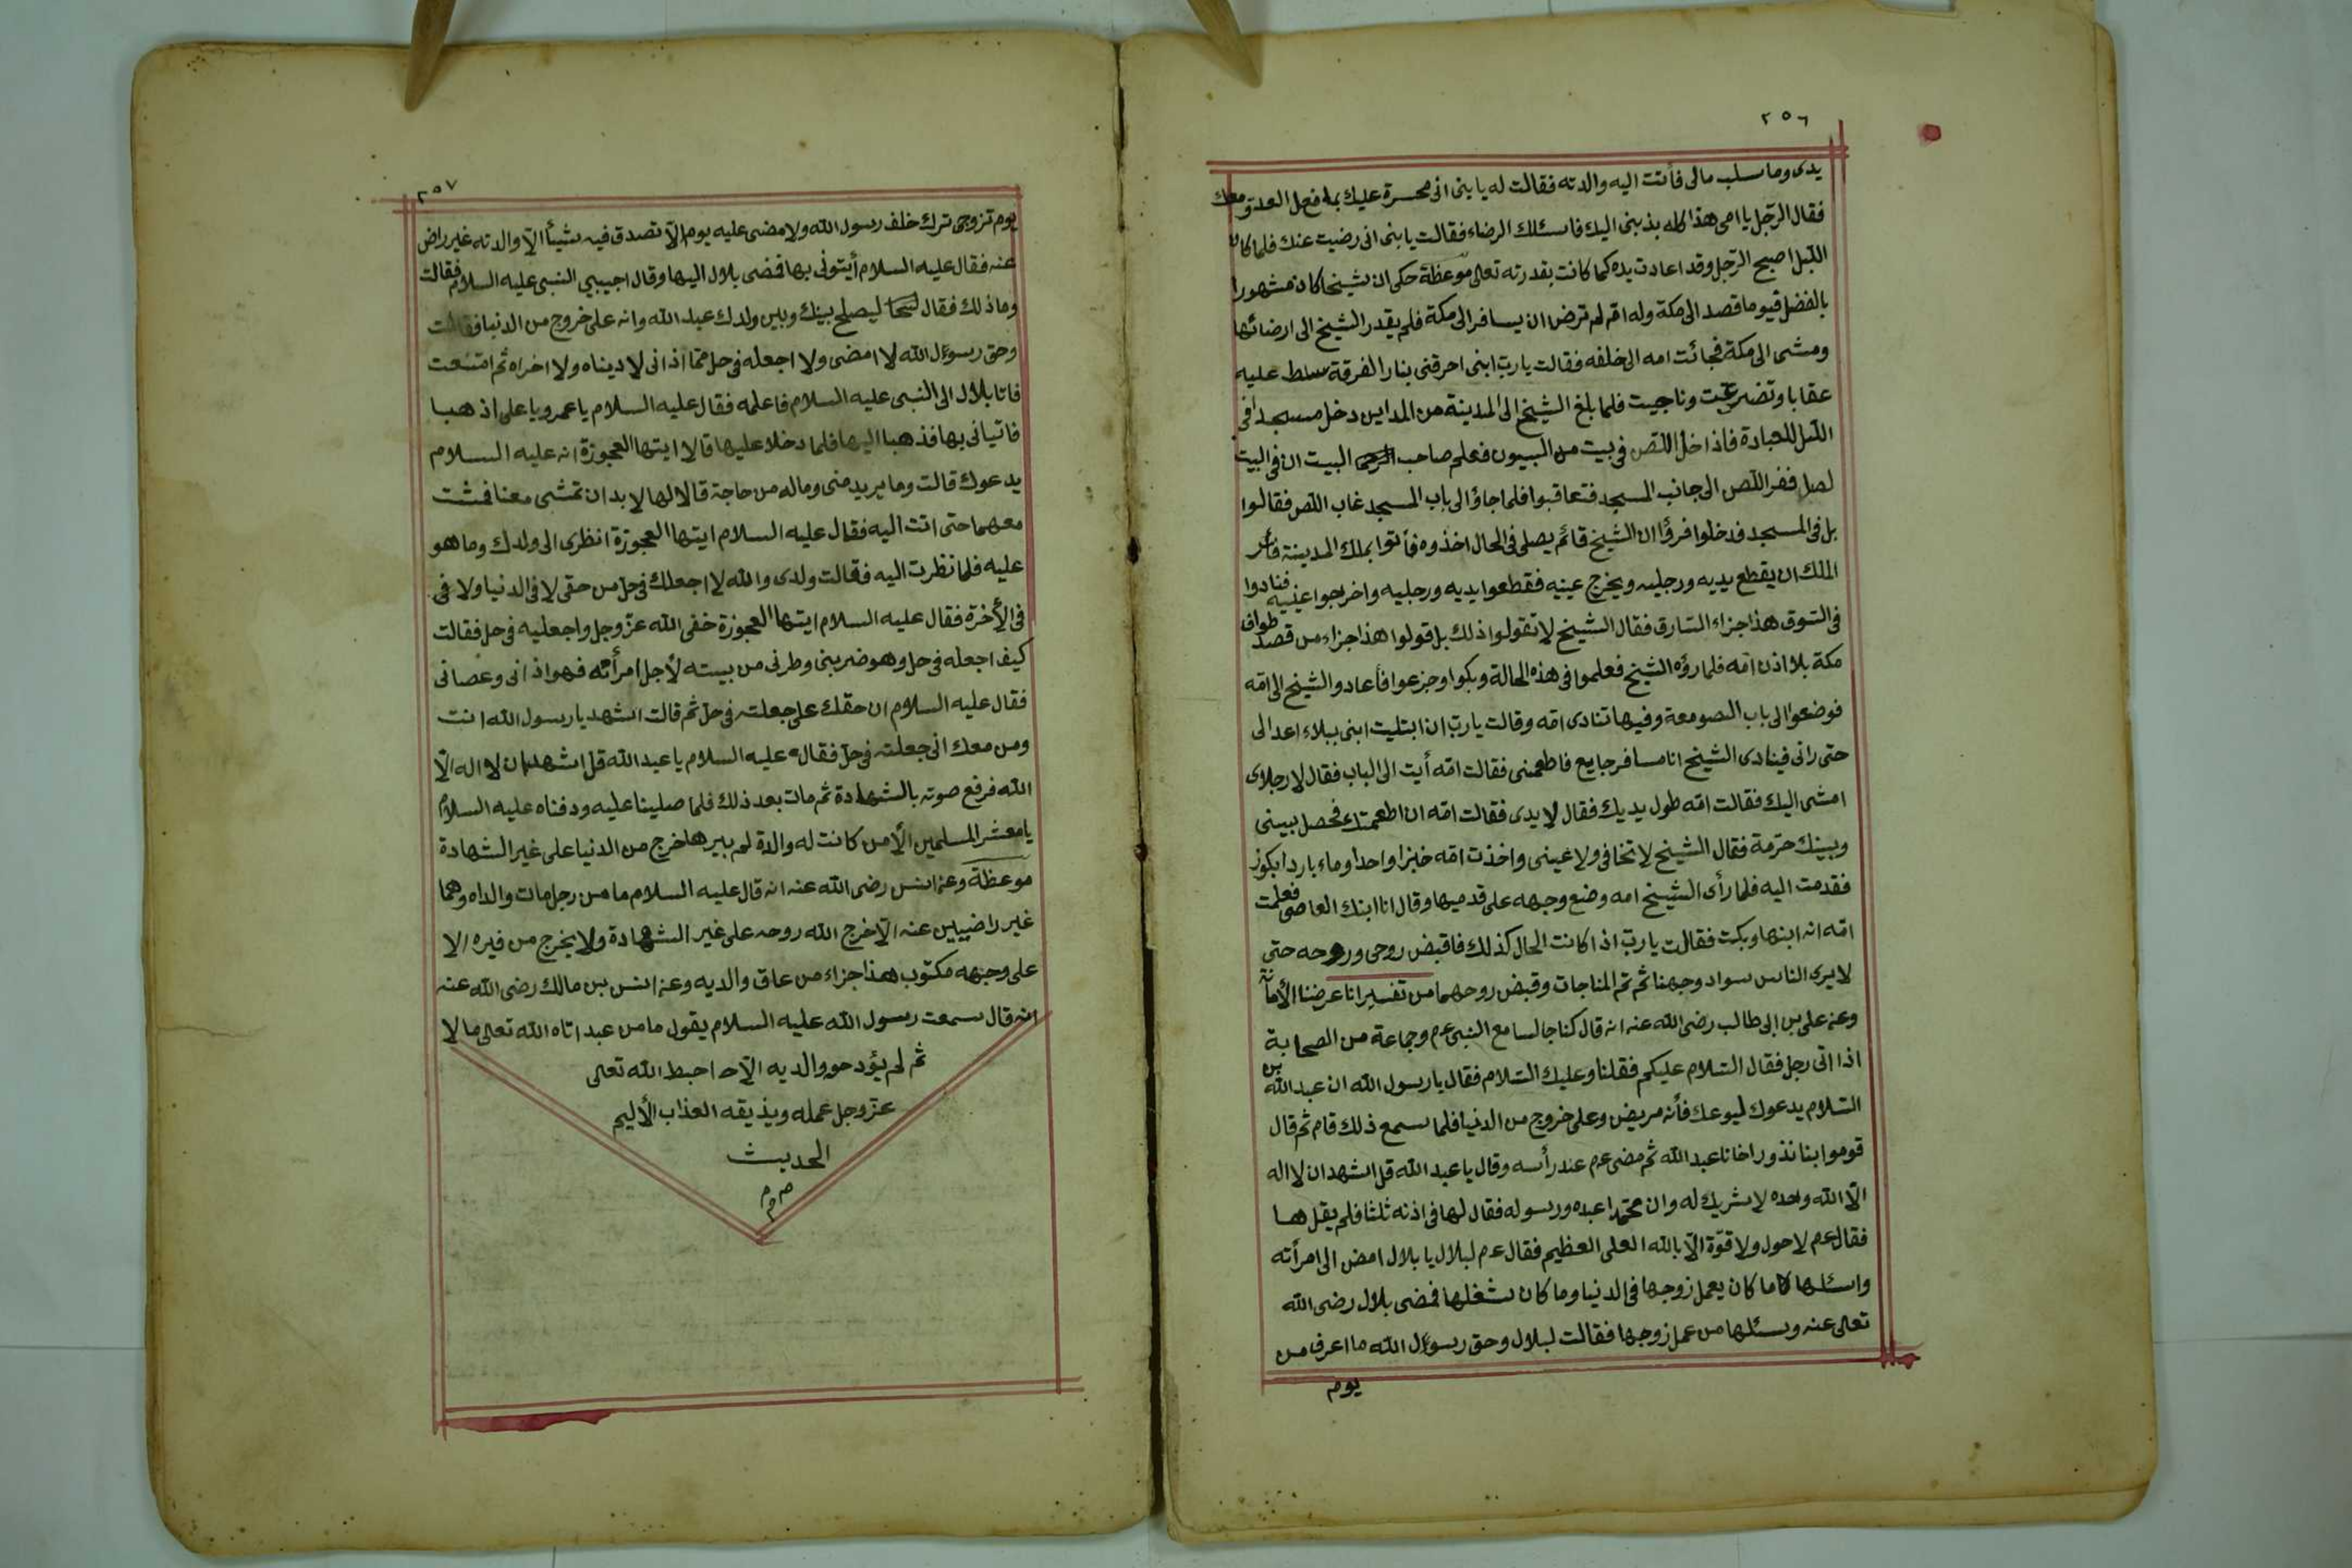 ٢٥٦
يدى وما سلب مالى فأتت اليه والدته فقالت له يا بنى انى محسرة عليك بما فعل العدو معك
فقال الرّجل يا امى هذا كله بذنبى اليك فاسئلك الرضاء فقالت يا بنى انى رضيت عنك فلما كان
اللّيل اصبح الرّجل وقد اعادت يده كما كانت بقدرته تعالى موعظة حكى ان شيخا كان مشهورا
بالفضل فيوما قصد الى مكة وله امّ لم ترض ان يسافر الى مكة فلم يقدر الشيخ الى ارضائها
ومشى الى مكة فجائت امه الى خلفه فقالت يا ربّ ابنى احرقنى بنار الفرقة سلط عليه
عقابا وتضرعت وناجيت فلما بلغ الشيخ الى المدينة من المداين دخل مسجدا فى
اللّيل للعبادة فاذا دخل اللّص فى بيت من البيوت فعلم صاحب البيت ان فى البيت
لصا ففر اللّص الى جانب المسجد فتعاقبوا فلما جاؤا الى باب المسجد غاب اللّص فقالوا
بل فى المسجد فدخلوا فرؤا ان الشيخ قائم يصلى فى الحال اخذوه فأتوا بملك المدينة فأمر
الملك ان يقطع يديه ورجليه ويخرج عينيه فقطعوا يديه ورجليه واخرجوا عينيه فنادوا
فى السّوق هذا جزاء السّارق فقال الشيخ لا تقولوا ذلك بل قولوا هذا جزاء من قصد طواف
مكة بلا اذن امّه فلما رؤه الشيخ فعلموا فى هذه الحالة وبكوا وجزعوا فأعادوا الشيخ الى امّه
فوضعوا الى باب الصومعة وفيها تنادى امّه وقالت يا ربّ ان ابتليت ابنى ببلاء اعد الى
حتى رانى فينادى الشيخ انا مسافر جايع فاطعمنى فقالت امّه أيت الى الباب فقال لا رجلاى
امشى اليك فقالت امّه طول يديك فقال لا يدى فقالت امّه ان اطعمتك فحصل بينى
وبينك حرمة فقال الشيخ لا تخافى ولا عينى واخذت امّه خبزا واحدا وماء باردا بكوز
فقدمت اليه فلما رأى الشيخ امه وضع وجهه على قدميها وقال انا ابنك العاصى فعلمت
امّه انه ابنها وبكت فقالت يا ربّ اذا كانت الحال كذلك فاقبض روحى وروحه حتى
لا يرى الناس سواد وجهنا ثم تم المناجات وقبض روحهما من تفسير انا عرضنا الأمانة
وعنه على بن ابى طالب رضى الله عنه انه قال كنا جالسا مع النبى عم وجماعة من الصحابة
اذا اتى رجل فقال السّلام عليكم فقلنا وعليك السّلام فقال يا رسول الله ان عبد الله بن
السّلام يدعوك ليوعك فأنه مريض وعلى خروج من الدنيا فلما سمع ذلك قام ثم قال
قوموا بنا نذور اخانا عبد الله ثم مضى عم عند رأسه وقال يا عبد الله قل اشهد ان لا اله
الاّ الله وحده لا شريك له وان محمّدا عبده ورسوله فقال لها فى اذنه ثلثا فلم يقل ها
فقال عم لا حول ولا قوّة الاّ بالله العلى العظيم فقال عم لبلال يا بلال امض الى امرأته
واسئلها كاما كان يعمل زوجها فى الدنيا وما كان شغلها فمضى بلال رضى الله
تعالى عنه وسئلها من عمل زوجها فقالت لبلال وحق رسول الله ما اعرف من
يوم
٢٥٧
يوم تزوجى ترك خلف رسول الله ولا مضى عليه يوم الاّ تصدق فيه شيئا الاّ والدته غير راض
عنه فقال عليه السلام أيتونى بها فمضى بلال اليها وقال اجيبي النبى عليه السلام فقالت
وما ذلك فقال ليصلح بينك وبين ولدك عبد الله وانه على خروج من الدنيا فقالت
وحق رسول الله لا امضى ولا اجعله فى حل ممّا اذانى لا ديناه ولا اخراه ثم امتنعت
فاتا بلال الى النبى عليه السلام فاعلمه فقال عليه السلام يا عمر ويا على اذهبا
فاتيانى بها فذهبا اليها فلما دخلا عليها قالا ايتها العجوزة انه عليه السلام
يدعوك قالت وما يريد منى وماله من حاجة قالا لها لا بد ان تمشى معنا فمشت
معهما حتى اتت اليه فقال عليه السلام ايتها العجوزة انظرى الى ولدك وما هو
عليه فلما نظرت اليه فقالت ولدى والله لا اجعلك فى حل من حقى لا فى الدنيا ولا فى
فى الأخرة فقال عليه السلام ايتها العجوزة خفى الله عزّ وجل واجعليه فى حل فقالت
كيف اجعله فى حل وهو ضربنى وطرنى من بيته لأجل امرأته فهو اذانى وعصانى
فقال عليه السلام ان حقك على جعلته فى حل ثم قالت اشهد يا رسول الله انت
ومن معك انى جعلته فى حلّ فقال عليه السلام يا عبد الله قل اشهد ان لا اله الاّ
الله فرفع صوته بالشهادة ثم مات بعد ذلك فلما صلينا عليه ودفناه عليه السلام
يا معشر المسلمين الأ من كانت له والدة لم يبرها خرج من الدنيا على غير الشهادة
موعظة وعنه انس رضى الله عنه انه قال عليه السلام ما من رجل مات والداه وهما
غير راضيين عنه الاّ خرج الله روحه على غير الشهادة ولا يخرج من قبره الا
على وجهه مكتوب هذا جزاء من عاق والديه وعنه انس بن مالك رضى الله عنه
انه قال سمعت رسول الله عليه السلام يقول ما من عبد اتاه الله تعالى مالا
ثم لم يؤد حق والديه الاّ احبط الله تعالى
عزّ وجل عمله ويذيقه العذاب الأليم
الحديث
م م م